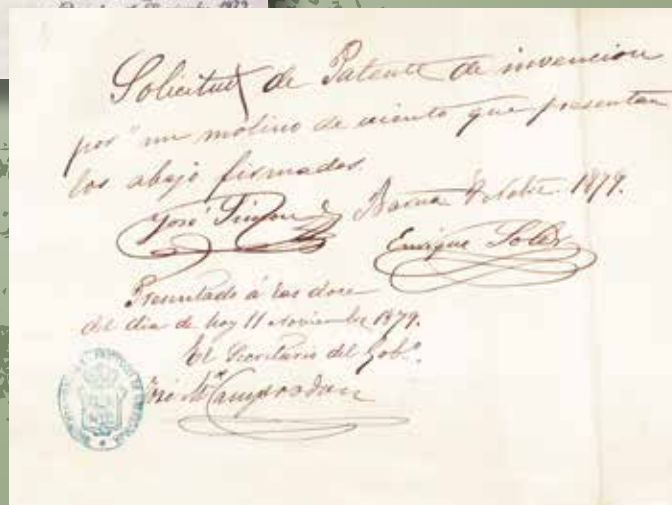 1879
Solicitud de Patente de invencion
por "un molino de viento que presentan
los abajo firmados.
José Barna 8 Nbre. 1879.
Enrique Soler
Presentado á las doce
del dia de hoy 11 noviembre 1879.
El Secretario del Gobo.
José Ma. Camprodon